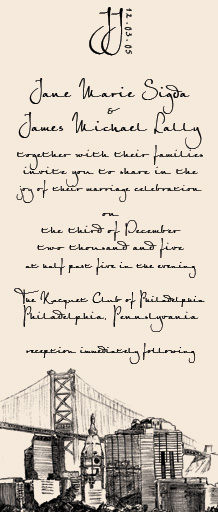 JJ
12.03.05
Jane Marie Sigda
&
James Michael Lally
together with their families
invite you to share in the
joy of their marriage celebration
on
the third of December
two thousand and five
at half past five in the evening
The Racquet Club of Philadelphia
Philadelphia, Pennsylvania
reception immediately following